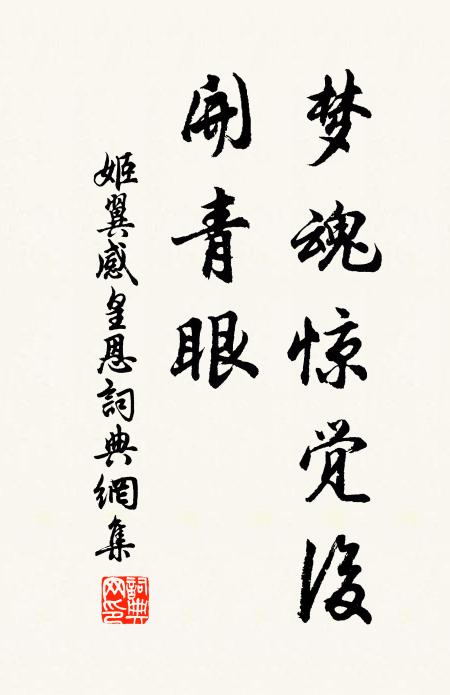 梦魂惊觉後
開青眼
姬翼感皇恩詞典網集
詞典网印